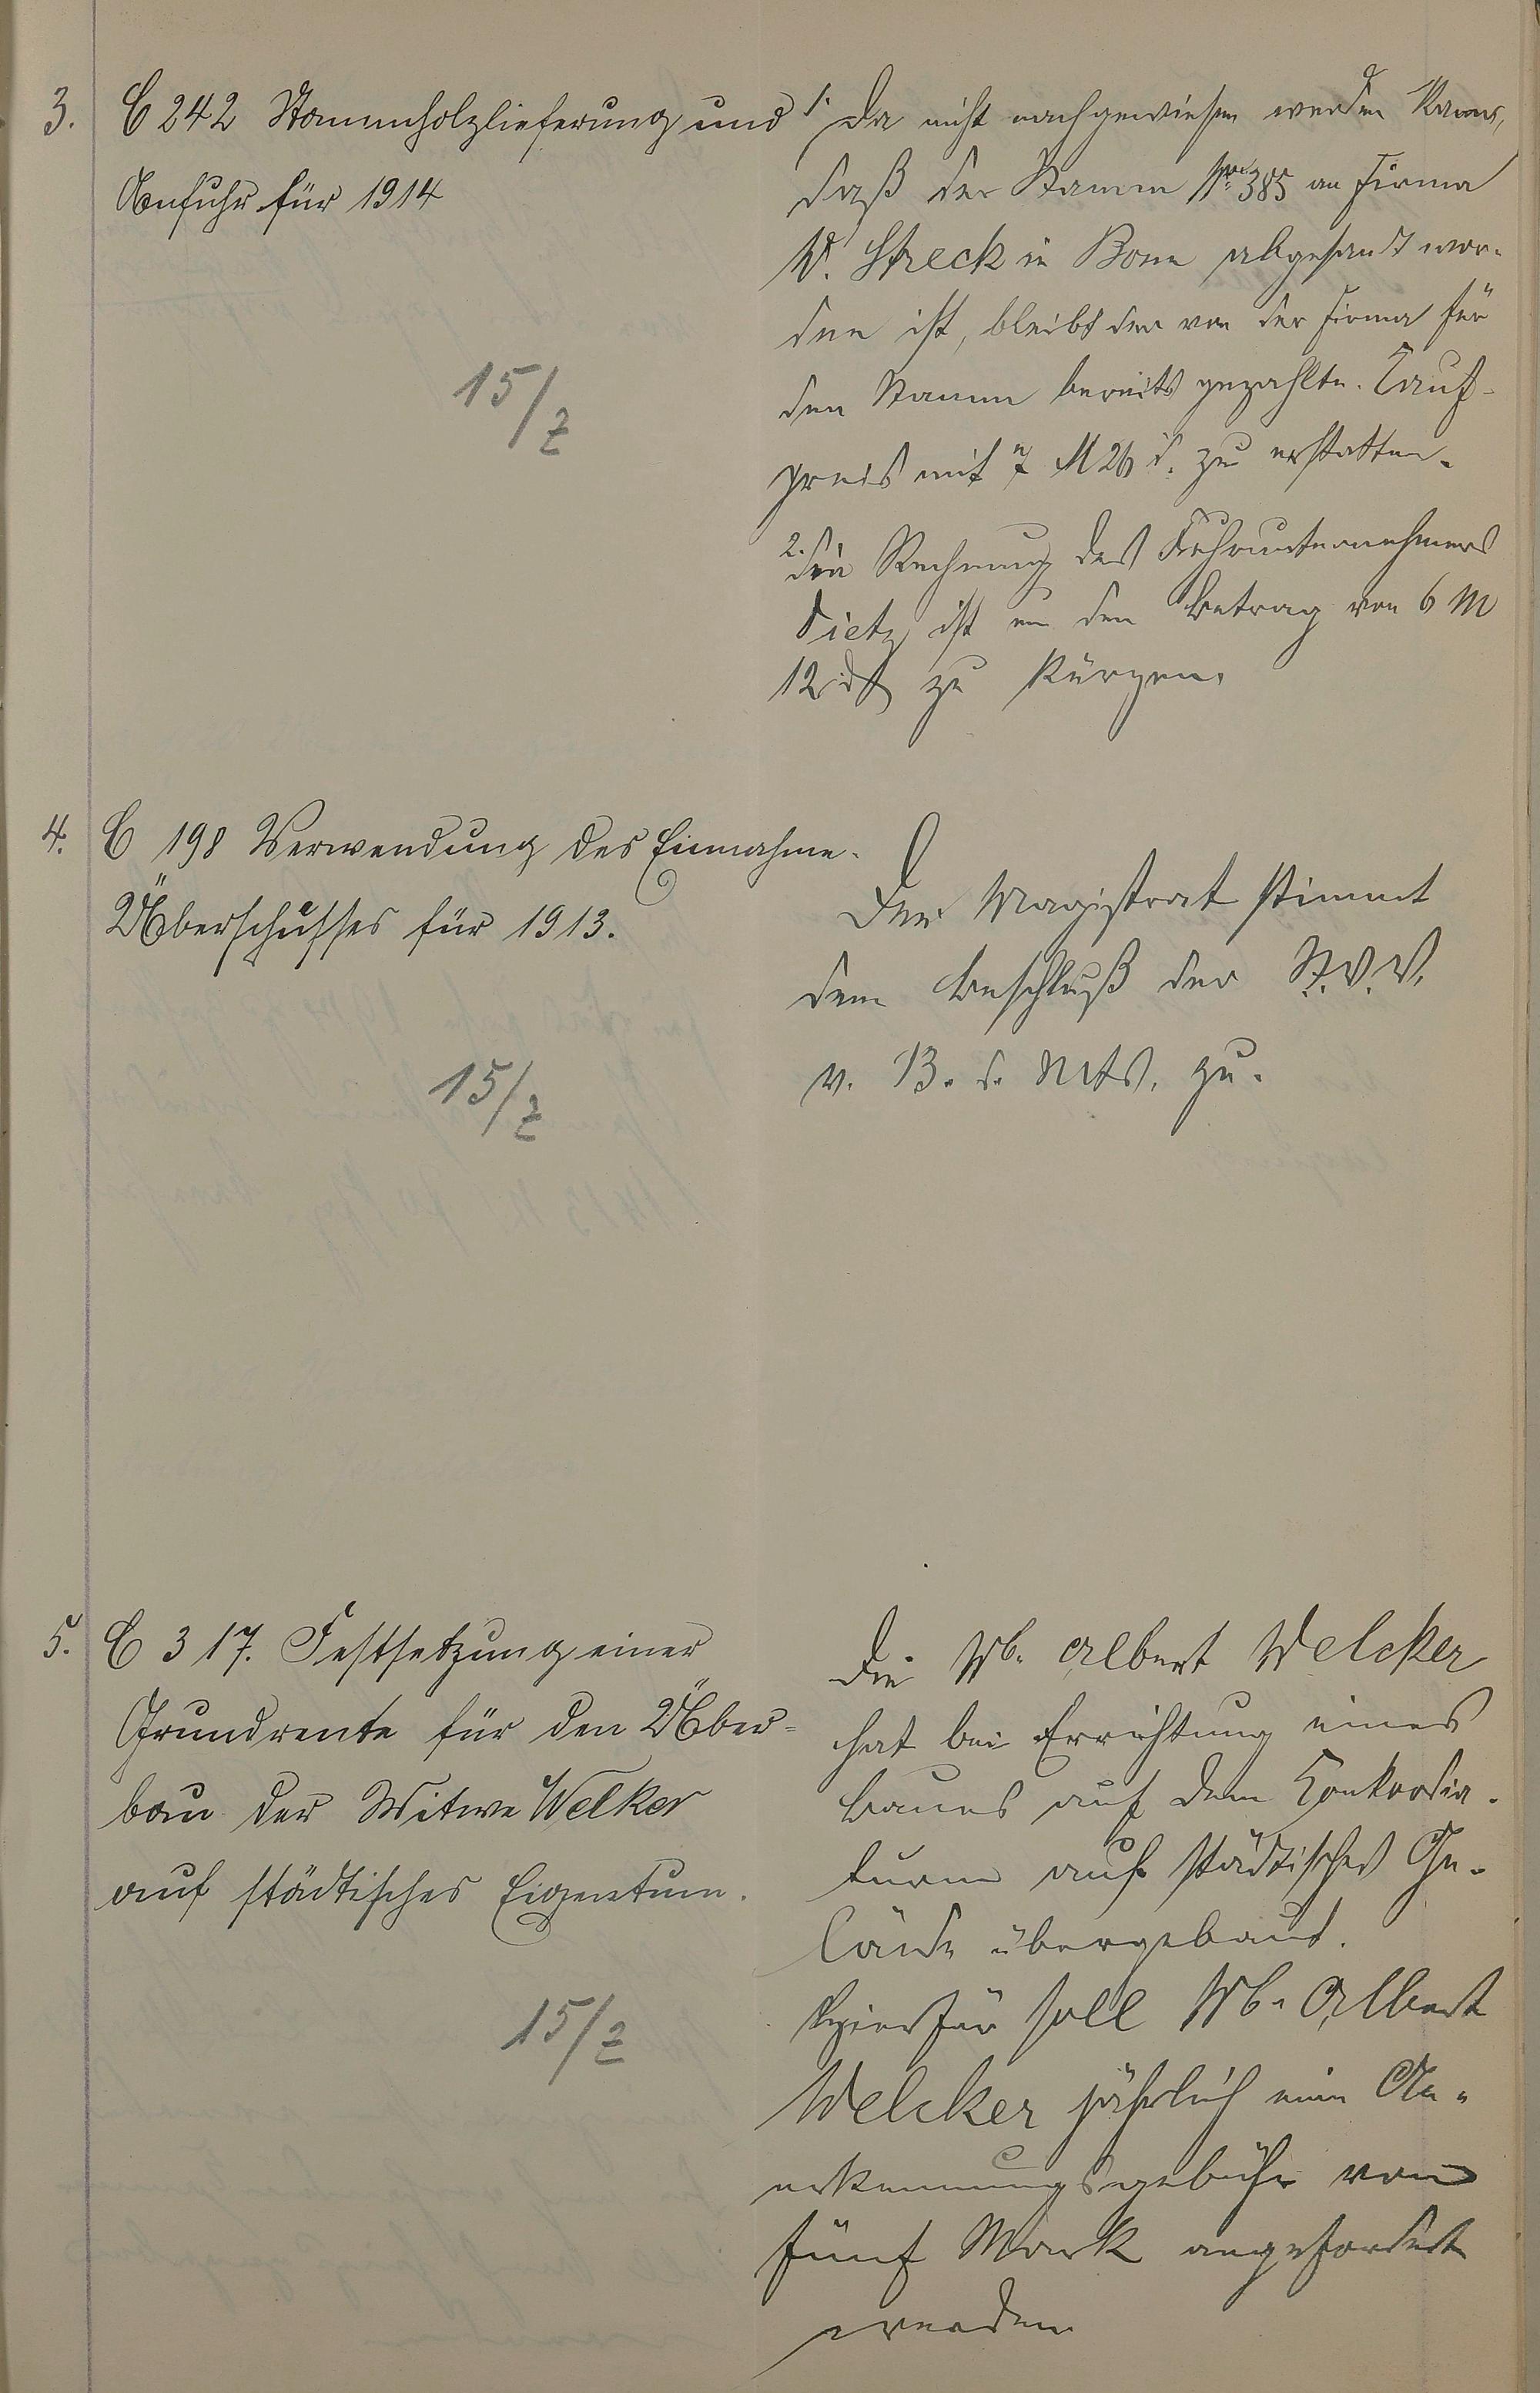 3. C 242 Stammholzlieferung und
Abfuhr für 1914
15/Z
1. Da nicht nachgewiesen werden kann,
daß der Stamm No 385 an Firma
W. Streck in Bonn abgesandt wor-
den ist, bleibt der von der Firma für
den Stamm bereits gezahlte Kauf-
preis mit 7 M 26 d. zu erstatten.
2. Die Rechnung des Fuhrunternehmers
Dietz ist um den Betrag von 6 M
12 d zu kürzen.
4. C 198 Verwendung des Einnahme-
Überschusses für 1913.
15/Z
Der Magistrat stimmt
dem Beschluß der St. V. V.
v. 13. d. Mts. zu.
5. C 317. Festsetzung einer
Grundrente für den Über-
bau der Witwe Welker
auf städtisches Eigentum.
15/Z
Die Wb. Albert Welcker
hat bei Errichtung eines
Baues auf dem Konkordia-
turm auf städtisches Ge-
lände übergebaut.
Hierfür soll Wb. Albert
Welcker jährlich eine An-
erkennungsgebühr von
fünf Mark angefordert
werden